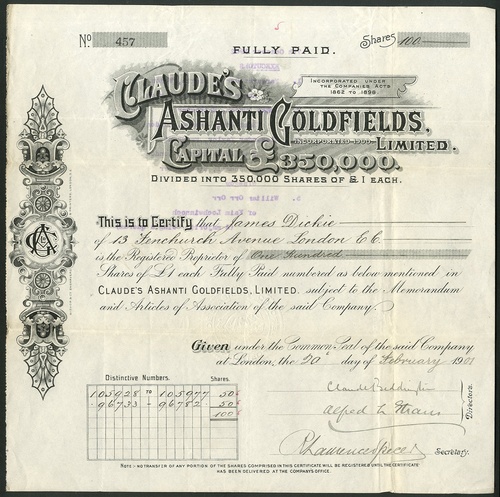 No 457
FULLY PAID.
Shares 100
CLAUDE'S
INCORPORATED UNDER
THE COMPANIES ACTS
1862 TO 1899
ASHANTI GOLDFIELDS,
INCORPORATED 1900 LIMITED.
CAPITAL £350,000.
DIVIDED INTO 350,000 SHARES OF £1 EACH.
This is to Certify that James Dickie
of 13 Fenchurch Avenue London E.C.
is the Registered Proprietor of One Hundred
Shares of £1 each Fully Paid numbered as below mentioned in
CLAUDE'S ASHANTI GOLDFIELDS, LIMITED. subject to the Memorandum
and Articles of Association of the said Company.
Given under the Common Seal of the said Company
at London, the 20 day of February 1901
Distinctive Numbers. Shares.
105928 TO 105977 50
96733 - 96782 50
100
Alfred L
Directors.
Secretary.
NOTE - NO TRANSFER OF ANY PORTION OF THE SHARES COMPRISED IN THIS CERTIFICATE WILL BE REGISTERED UNTIL THE CERTIFICATE
HAS BEEN DELIVERED AT THE COMPANY'S OFFICE.